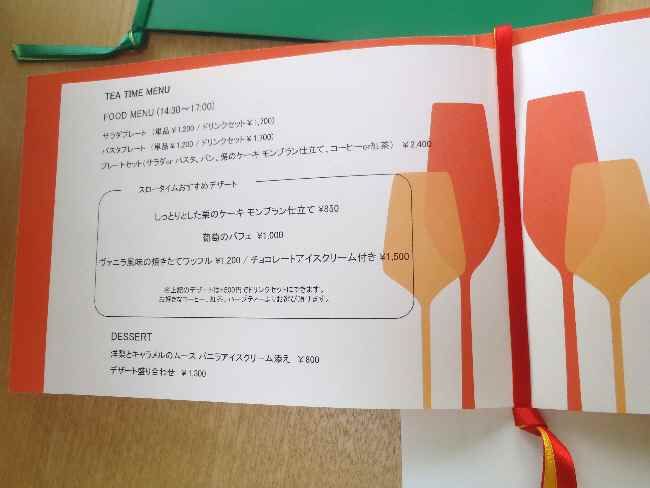 TEA TIME MENU
FOOD MENU (14:30～17:00)
サラダプレート （単品 ¥1,200 / ドリンクセット ¥1,700）
パスタプレート （単品 ¥1,200 / ドリンクセット ¥1,700）
プレートセット(サラダor パスタ、パン、栗のケーキ モンブラン仕立て、コーヒーor紅茶） ¥2,400
スロータイムおすすめデザート
しっとりとした栗のケーキ モンブラン仕立て ¥850
葡萄のパフェ ¥1,000
ヴァニラ風味の焼きたてワッフル ¥1,200 / チョコレートアイスクリーム付き ¥1,500
※上記のデザートは+500円でドリンクセットにできます。
お好きなコーヒー、紅茶、ハーブティーよりお選び頂けます。
DESSERT
洋梨とキャラメルのムース バニラアイスクリーム添え ¥800
デザート盛り合わせ ¥1,300